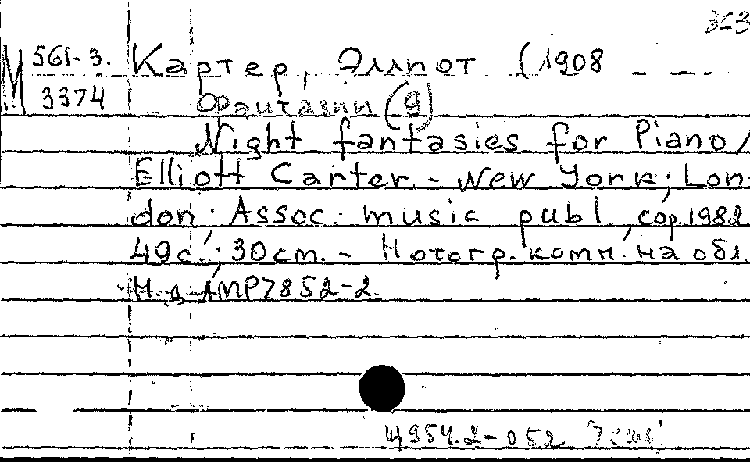 М 561-3. Картер, Эллиот (1908 - -
3374 Фантазии (9)
Night fantasies for Piano /
Elliott Carter. - New York; Lon-
don: Assoc. music publ, cop. 1982
49 с.; 30 cm. - Нотогр. комм. на обл.
Н. д. AMP7852-2.
Щ954.2-052